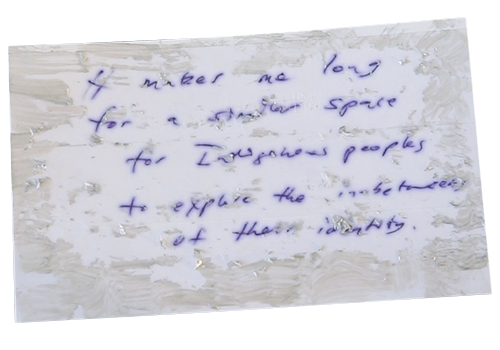 It makes me long
for a similar space
for Indigenous peoples
to explore the inbetween
of their identity.